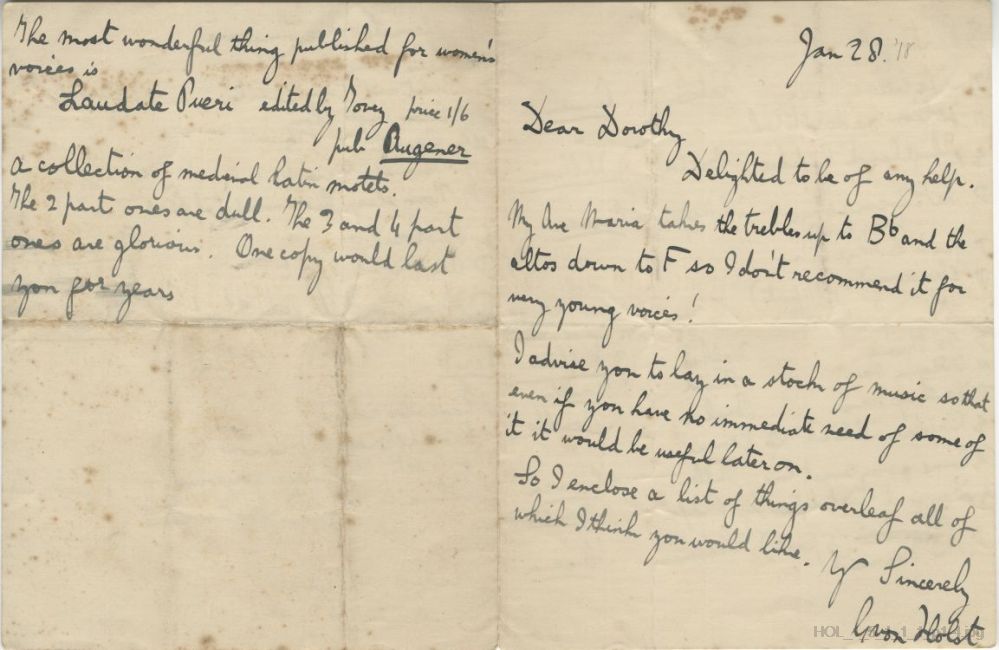 The most wonderful thing published for women's
voices is
Laudate Pueri edited by Tovey price 1/6
pub Augener
a collection of medieval Latin motets.
The 2 part ones are dull. The 3 and 4 part
ones are glorious. One copy would last
you for years
Jan 28. '18
Dear Dorothy
Delighted to be of any help.
My Ave Maria takes the trebles up to Bb and the
altos down to F so I don't recommend it for
very young voices!
I advise you to lay in a stock of music so that
even if you have no immediate need of some of
it it would be useful later on.
So I enclose a list of things overleaf all of
which I think you would like.
Yr Sincerely
G von Holst